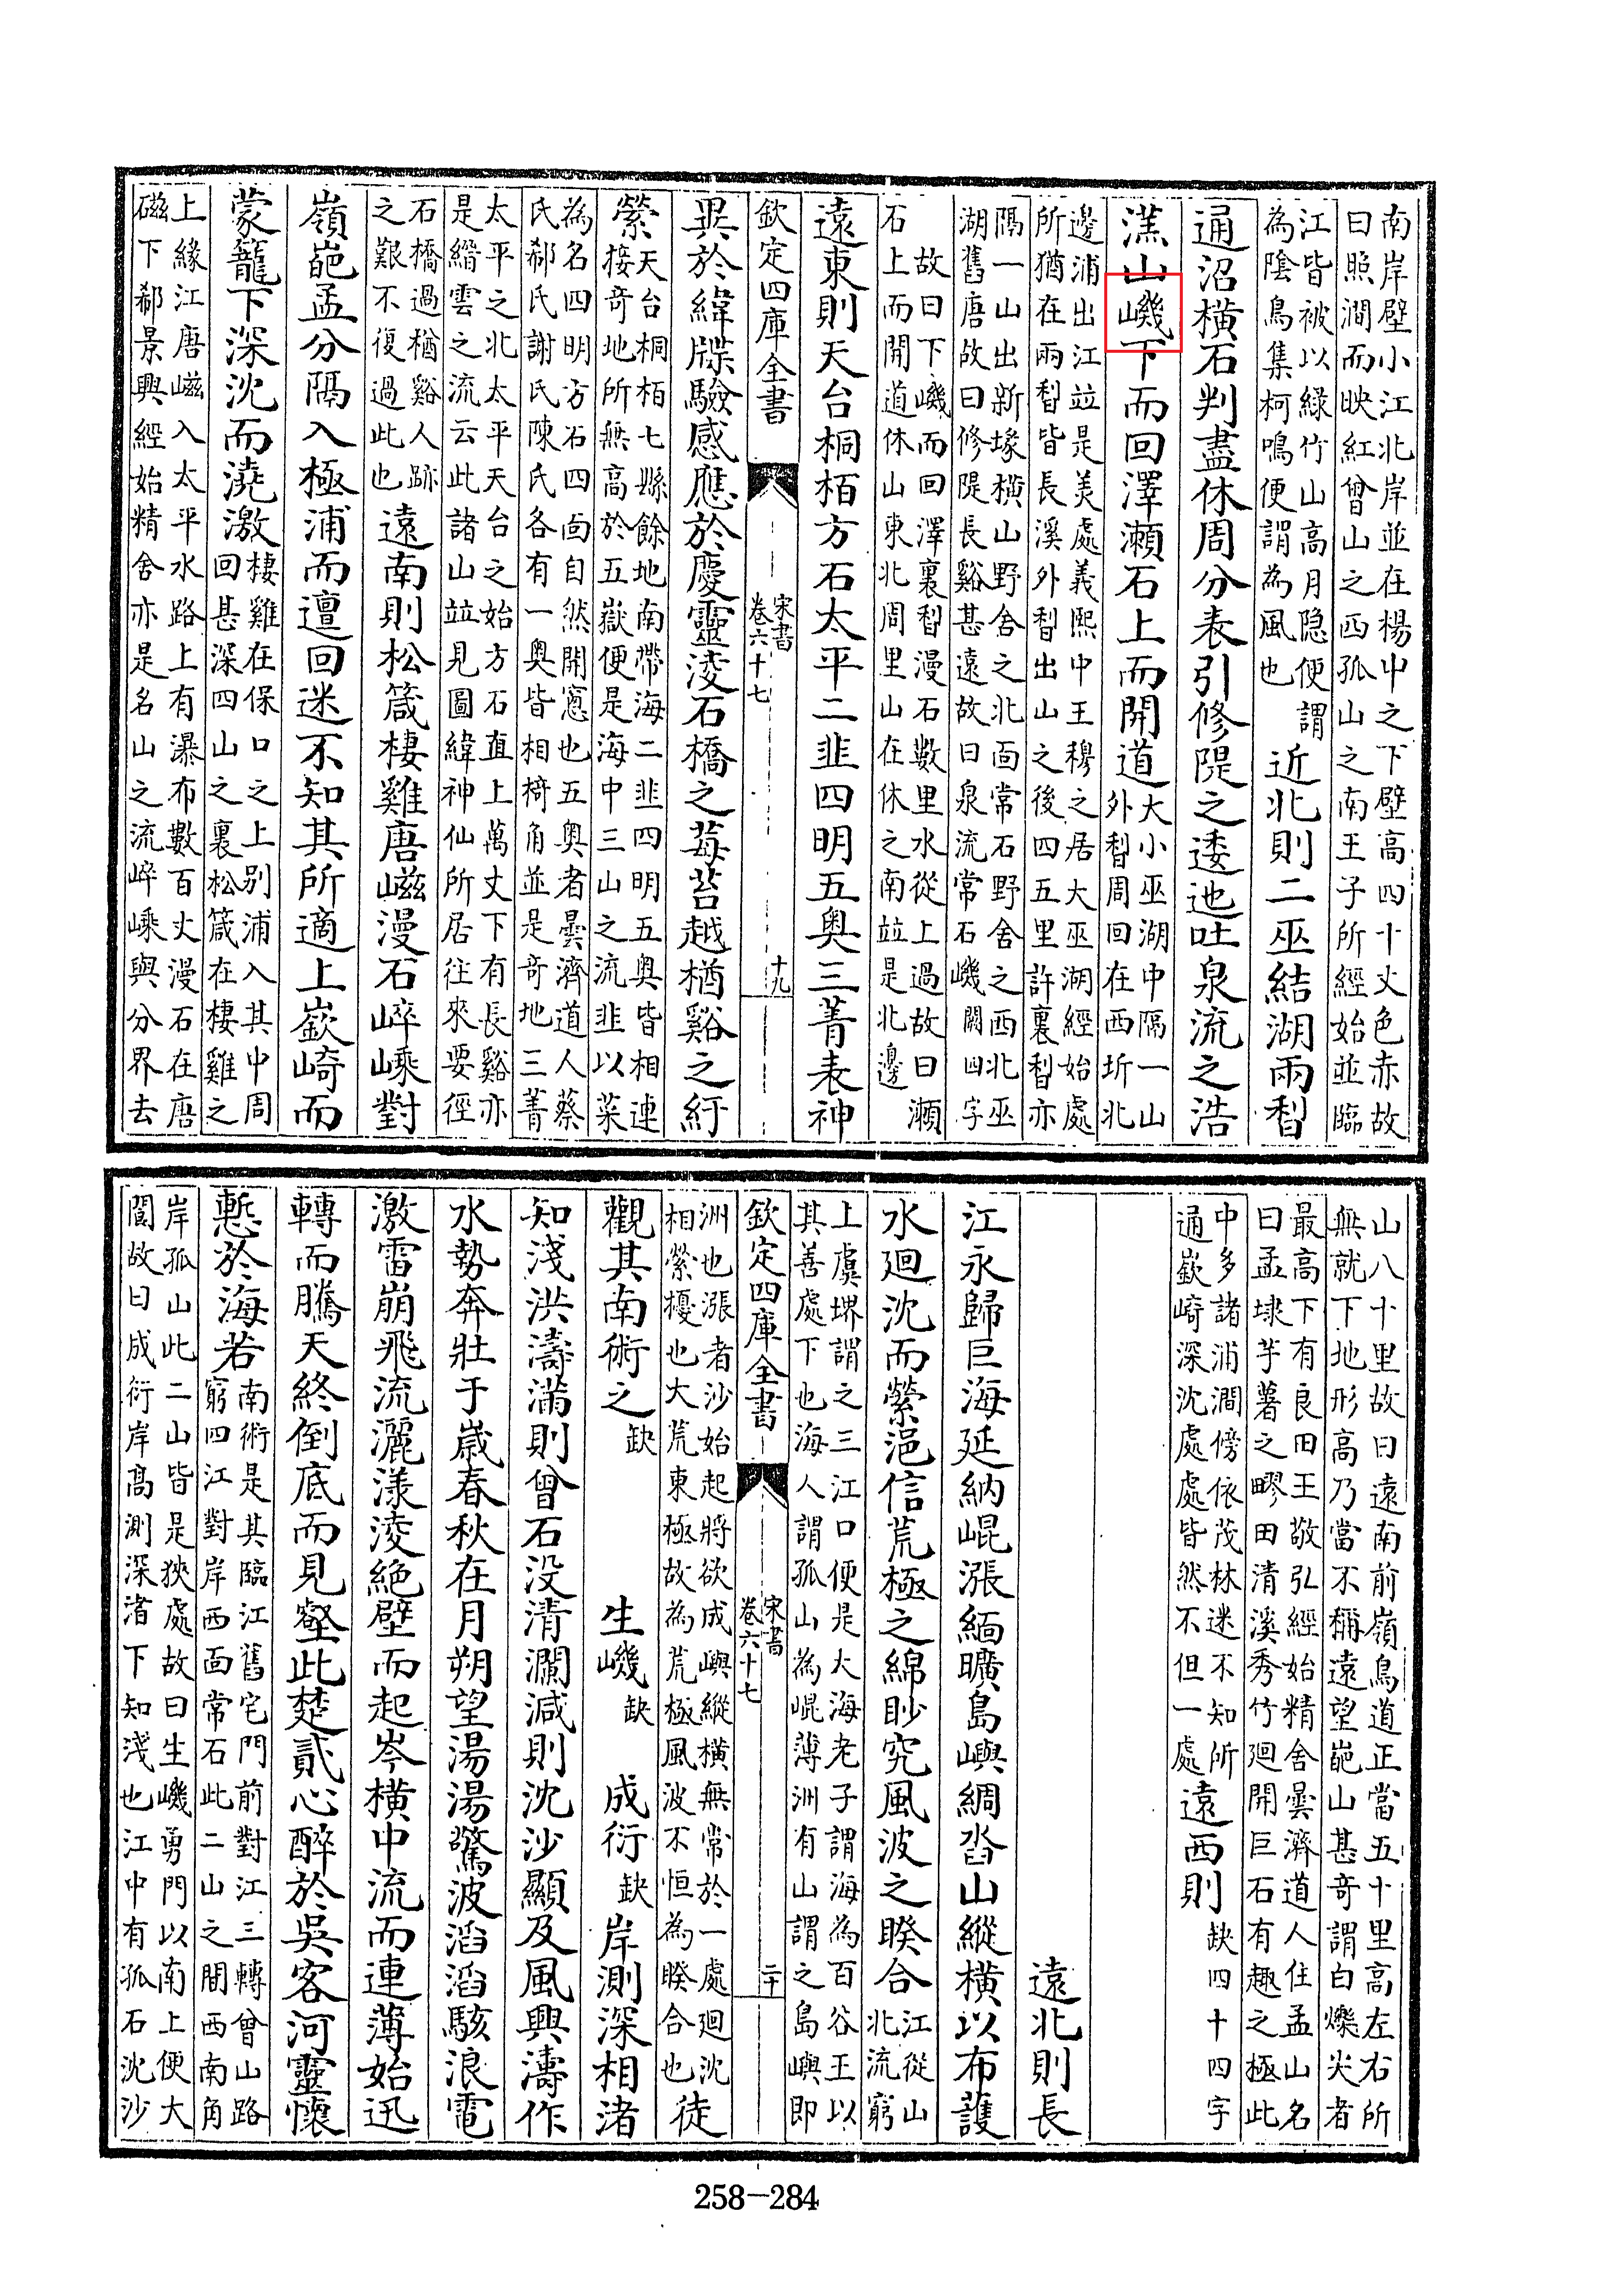 南岸壁小江北岸並在楊中之下壁高四十丈色赤故
曰照澗而映紅曾山之西孤山之南王子所經始並臨
江皆被以綠竹山高月隐便謂
為陰鳥集柯鳴便謂為風也
近北則二巫結湖兩
通沼橫石判盡休周分表引修隄之逶迤吐泉流之浩
漾山㠖下而回澤瀬石上而開道
大小巫湖中隔一山
外周回在西圻北
邊浦出江竝是美處義熙中王穆之居大巫湖經始處
所猶在兩皆長溪外出山之後四五里許裏亦
隔一山出新塚橫山野舍之北面常石野舍之西北巫
湖舊唐故曰修隄長谿甚遠故曰泉流常石㠖闕四字
故曰下㠖而回澤裏漫石數里水從上過故曰瀬
石上而開道休山東北周里山在休之南竝是北邊
遠東則天台桐栢方石太平二韭四明五奥三菁表神
欽定四庫全書
宋書
卷六十七
十九
異於緯牒驗感應於慶靈淩石橋之莓苔越楢谿之紆
縈
天台桐栢七縣餘地南帶海二韭四明五奥皆相連
接奇地所無高於五嶽便是海中三山之流韭以菜
為名四明方石四面自然開窻也五奥者曇濟道人蔡
氏郗氏謝氏陳氏各有一奥皆相掎角並是奇地三菁
太平之北太平天台之始方石直上萬丈下有長谿亦
是縉雲之流云此諸山竝見圖緯神仙所居往來要徑
石橋過楢谿人跡
之艱不復過此也
遠南則松箴棲雞唐嵫漫石崪嵊對
嶺𡵺孟分隔入極浦而邅回迷不知其所適上嶔崎而
蒙籠下深沈而澆激
棲雞在保口之上别浦入其中周
回甚深四山之裏松箴在棲雞之
上緣江唐嵫入太平水路上有瀑布數百丈漫石在唐
磁下郗景興經始精舍亦是名山之流崪嵊與分界去
山八十里故曰遠南前嶺鳥道正當五十里高左右所
無就下地形高乃當不稱遠望𡵺山甚奇謂白爍尖者
最高下有良田王敬弘經始精舍曇濟道人住孟山名
曰孟埭芋薯之疁田清溪秀竹廻開巨石有趣之極此
中多諸浦澗傍依茂林迷不知所
通嶔崎深沈處處皆然不但一處
遠西則
缺四十四字
遠北則長
江永歸巨海延納崐漲緬曠島嶼綢沓山縱橫以布護
水廻沈而縈浥信荒極之綿眇究風波之睽合
江從山
北流窮
上虞堺謂之三江口便是大海老子謂海為百谷王以
其善處下也海人謂孤山為崐薄洲有山謂之島嶼即
欽定四庫全書
宋書
卷六十七
二十
洲也漲者沙始起將欲成嶼縱横無常於一處廻沈
相縈擾也大荒東極故為荒極風波不恒為睽合也
徒
觀其南術之
缺
生㠖
缺
成衍
缺
岸測深相渚
知淺洪濤滿則曾石没清瀾減則沈沙顯及風興濤作
水勢奔壯于歲春秋在月朔望湯湯驚波滔滔駭浪電
激雷崩飛流灑漾淩絶壁而起岑橫中流而連薄始迅
轉而騰天終倒底而見壑此楚貳心醉於吳客河靈懷
慙於海若
南術是其臨江舊宅門前對江三轉曾山路
窮四江對岸西面常石此二山之間西南角
岸孤山此二山皆是狹處故曰生㠖勇門以南上便大
閶故曰成衍岸髙測深渚下知淺也江中有孤石沈沙
258-284